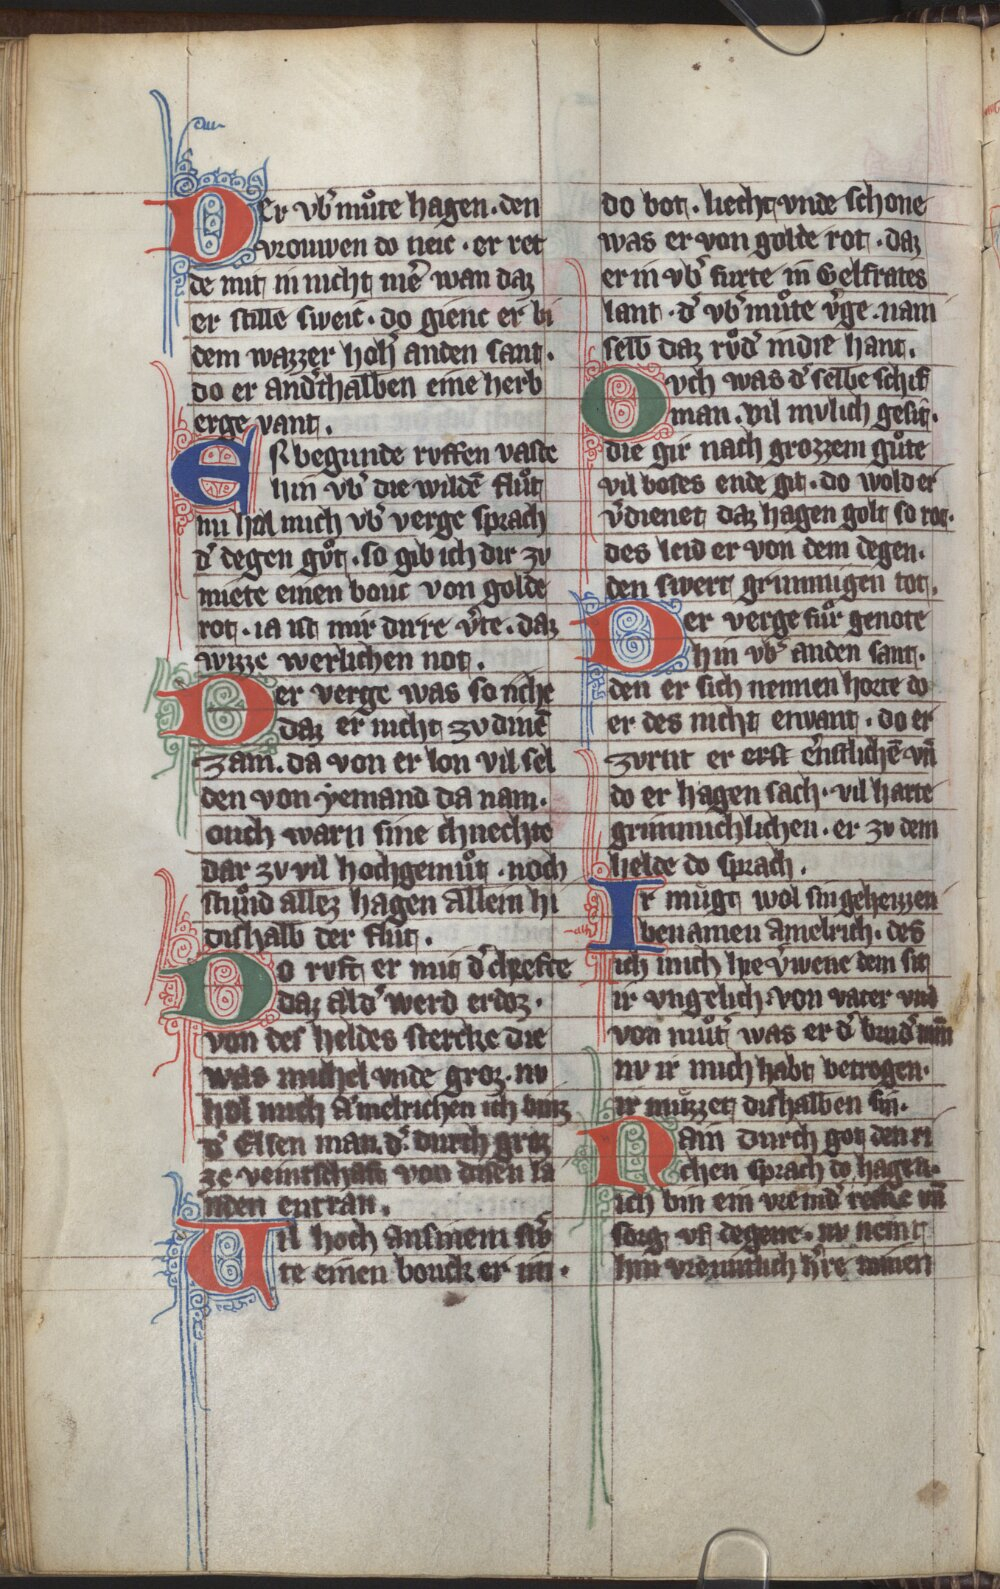 Der vb͛ mu̍te hagen . den
vrouwen do neic . er ret
de mit in nicht me͛ wan daz
er stille sweic . do gienc er bi
dem wazzer hoh͛ an den sant .
do er and͛thalben eine herb
erge vant .
Er begunde rvffen vaste
hin vb͛ die wilde͞ flu̍t
nu hol mich vb͛ verge sprach
d͛ degen gu̍t . so gib ich dir zv
miete einen bouc von golde
rot . ia ist mir dirre v͛te . daz
wizze werlichen not .
Der verge was so riche
daz er nicht zv dine͞
zam . da von er lon vil sel
den von yemand da nam .
ouch warn sine chnechte
dar zv vil hochgemu̍t . noch
stu̍nd allez hagen allein hi
dishalb der flut .
Do rvft er mit d͛ chrefte
daz al d͛ werd erdoz .
von des heldes stercke die
was michel vnde groz . nv
hol mich Amelrichen ich binz
d͛ Elsen man . d͛ durch groz
ze veintschaft von disen la
nden entran .
Vil hoch an sinem sw͛
te einen bouck er im .
do bot . liecht vnde schone
was er von golde rot . daz
er in vb͛ furte in Gelfrates
lant . d͛ vb͛ mu̍te v͛ge . nam
selb daz ru̍d͛ in die hant .
Ovch was d͛ selbe schif
man . vil mvlich gesit .
die gir nach grozzem gu̍te
vil boses ende git . do wold er
v͛dienet daz hagen golt so rot .
des leid er von dem degen .
den swert grimmigen tot .
Der verge fu̍r genote
hin vb͛ an den sant .
den er sich nennen horte do
er des nicht envant . do er
zvrnt er erst e͛nstliche͞ vn͞
do er hagen sach . vil harte
grimmichlichen . er zv dem
helde do sprach .
Ir mugt wol sin geheizzen
benamen Amelrich . des
ich mich hie v͛wene dem sit
ir vngelich . von vater vnd
von mu̍t͛ was er d͛ brud͛ min
nv ir mich habt betrogen .
ir muzzet dishalben sin .
Nain durch got den ri
chen sprach do hagen .
ich bin ein vremd͛ recke vn͞
sorg vf degene . nv nemt
hin vrevntlich h͛re minen